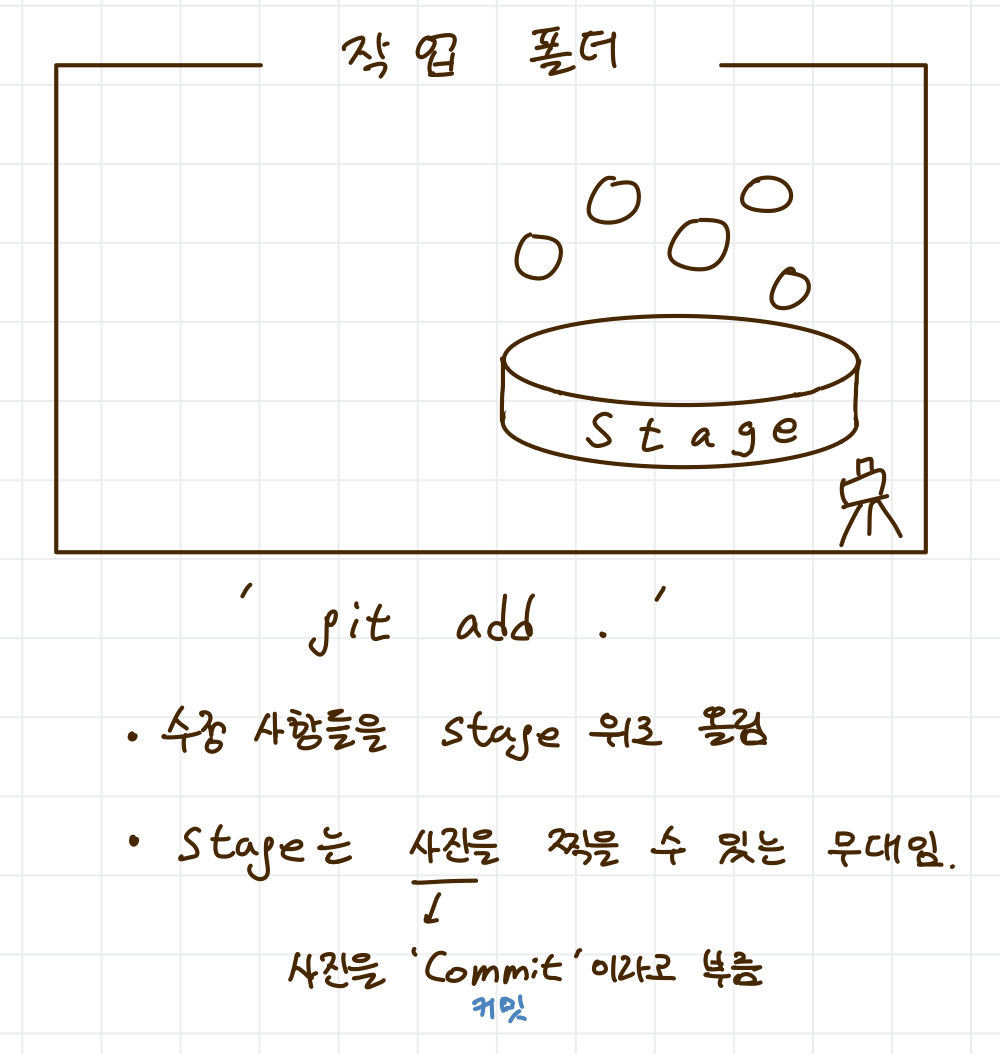 작업 폴더
Stage
' git add . '
• 수정 사항들을 stage 위로 올림
• stage는 사진을 찍을 수 있는 무대임.
↓
사진을 'Commit'이라고 부름
커밋